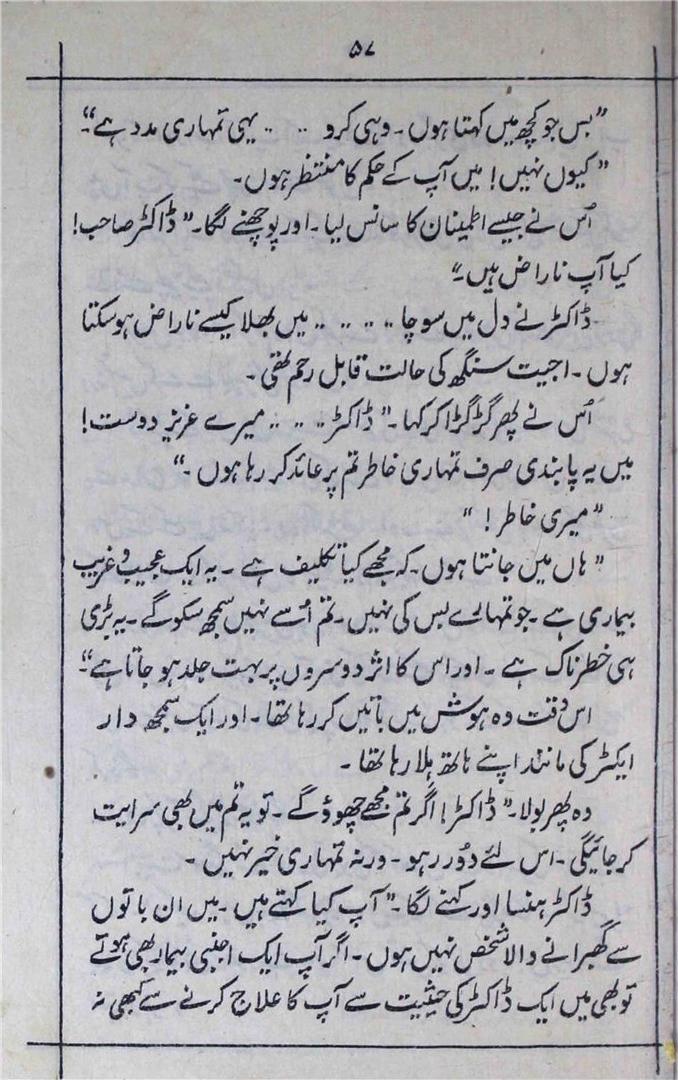 ۵۷
"بس جو کچھ میں کہتا ہوں۔ وہی کرو .. .. یہی تمہاری مدد ہے"۔
"کیوں نہیں! میں آپ کے حکم کا منتظر ہوں۔
اُس نے جیسے اطمینان کا سانس لیا۔ اور پوچھنے لگا۔" ڈاکٹر صاحب!
کیا آپ ناراض ہیں۔"
ڈاکٹر نے دل میں سوچا .. .. .. میں بھلا کیسے ناراض ہو سکتا
ہوں۔ اجیت سنگھ کی حالت قابل رحم تھی۔
اُس نے پھر گڑگڑا کر کہا۔" ڈاکٹر .. .. .. میرے عزیز دوست!
میں یہ پابندی صرف تمہاری خاطر تم پر عائد کر رہا ہوں۔"
"میری خاطر!"
"ہاں میں جانتا ہوں۔ کہ مجھے کیا تکلیف ہے۔ یہ ایک عجیب و غریب
بیماری ہے۔ جو تمہارے بس کی نہیں۔ تم اُسے نہیں سمجھ سکو گے۔ یہ بڑی
ہی خطرناک ہے۔ اور اس کا اثر دوسروں پر بہت جلد ہو جاتا ہے"۔
اس وقت وہ ہوش میں باتیں کر رہا تھا۔ اور ایک سمجھ دار
ایکٹر کی مانند اپنے ہاتھ ہلا رہا تھا۔
وہ پھر بولا۔" ڈاکٹر! اگر تم مجھے چھوؤ گے۔ تو یہ تم میں بھی سرایت
کر جائیگی۔ اس لئے دُور رہو۔ ورنہ تمہاری خیر نہیں۔
ڈاکٹر ہنسا اور کہنے لگا۔" آپ کیا کہتے ہیں۔ میں ان باتوں
سے گھبرانے والا شخص نہیں ہوں۔ اگر آپ ایک اجنبی بیمار بھی ہوتے
تو بھی میں ایک ڈاکٹر کی حیثیت سے آپ کا علاج کرنے سے کبھی نہ